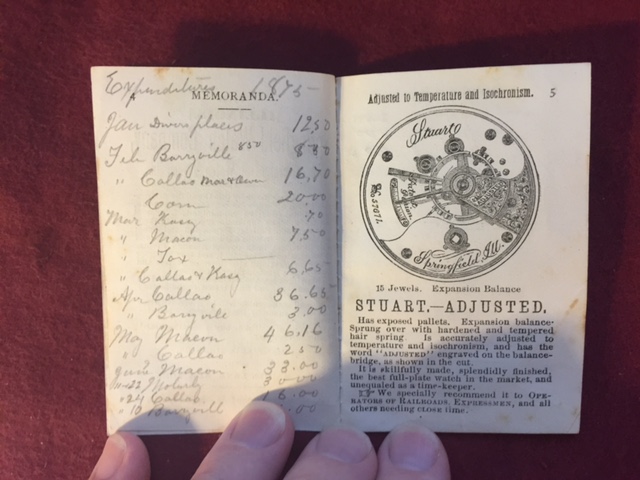 Expenditures 1875
MEMORANDA.
Jan Divers places 1250
Feb Barryville 850 850
" Callao 16.70
Corn 20.00
Mar Kasy .70
" Macon 7.50
" Tax
" Callao & Kasy 6.65
Apr Callao 36.65
" Barryvile 3.00
May Macon 46.16
" Callao 250
June Macon 33.00
" 24 Callao 16.00
" 10 Barryvill
Adjusted to Temperature and Isochronism. 5
Stuart
No 57071.
Springfield, Ill.
15 Jewels. Expansion Balance
STUART.—ADJUSTED.
Has exposed pallets, Expansion balance·
Sprung over with hardened and tempered
hair spring Is accurately adjusted to
temperature and isochronism, and has the
word "ADJUSTED" engraved on the balance-
bridge, as shown in the cut.
It is skillfully made, splendidly finished,
the best full-plate watch in the market, and
unequaled as a time-keeper.
☞ We specially recommend it to OPE-
RATORS OF RAILROADS, EXPRESSMEN, and all
others needing CLOSE time.